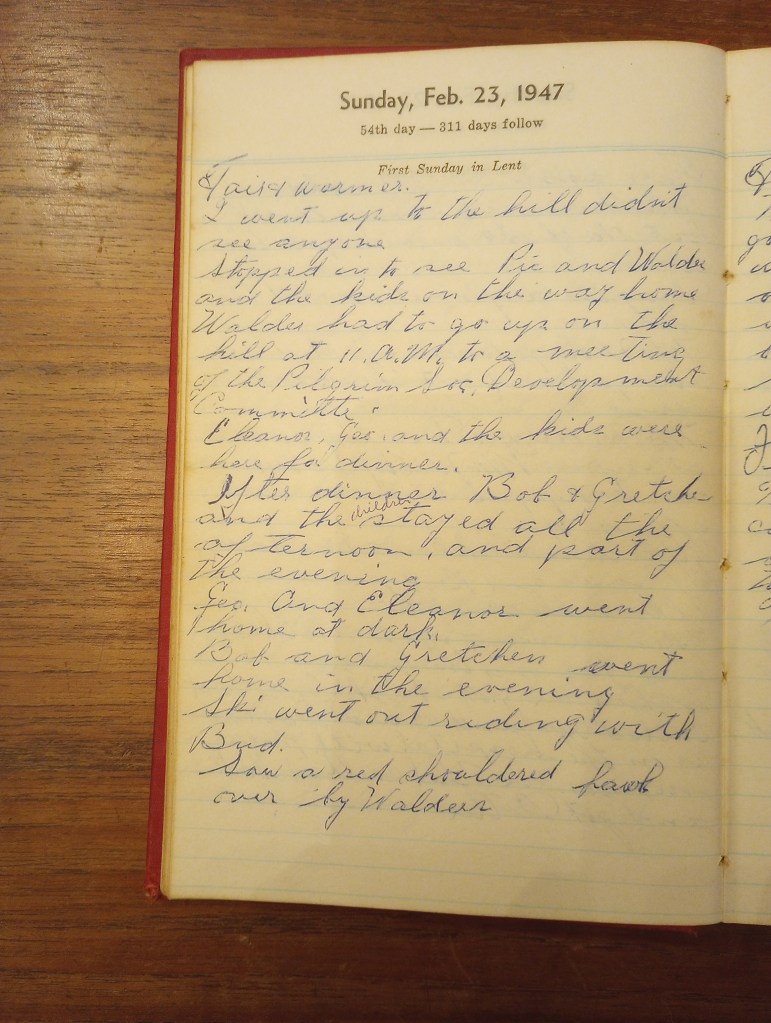 Sunday, Feb. 23, 1947
54th day — 311 days follow
First Sunday in Lent
Fair & warmer.
I went up to the hill didn't
see anyone
Stopped in to see Pic and Walder
and the kids on the way home
Walder had to go up on the
hill at 11.A.M. to a meeting
of the Pilgrim Soc. Development
Committe.
Eleanor, Geo. and the kids were
here for dinner.
After dinner Bob & Gretche
and the children stayed all the
afternoon, and part of
the evening
Geo. and Eleanor went
home at dark.
Bob and Gretchen went
home in the evening
Ski went out riding with
Bud.
Saw a red shouldered hawk
over by Walders